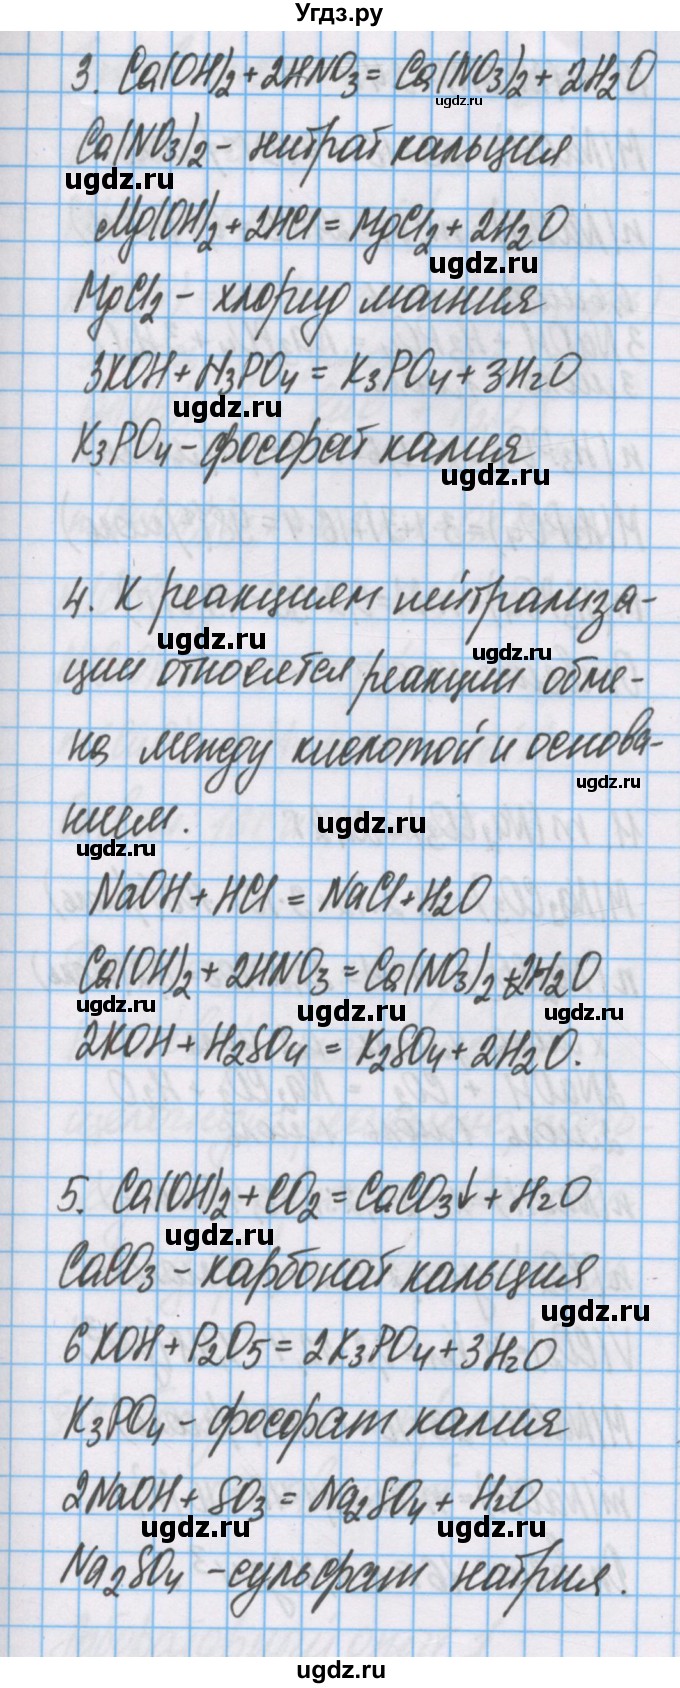 Угдз.ру
3. Ca(OH)2 + 2HNO3 = Ca(NO3)2 + 2H2O
ugdz.ru
Ca(NO3)2 - нитрат кальция
ugdz.ru
Mg(OH)2 + 2HCl = MgCl2 + 2H2O
ugdz.ru
MgCl2 - хлорид магния
3KOH + H3PO4 = K3PO4 + 3H2O
ugdz.ru
K3PO4 - фосфат калия
ugdz.ru
4. К реакциям нейтрализа-
ugdz.ru ugdz.ru
ции относятся реакции обме-
на между кислотой и основа-
ugdz.ru
нием.
ugdz.ru
ugdz.ru
NaOH + HCl = NaCl + H2O
Ca(OH)2 + 2HNO3 = Ca(NO3)2 + 2H2O
ugdz.ru ugdz.ru ugdz.ru
2KOH + H2SO4 = K2SO4 + 2H2O.
5. Ca(OH)2 + CO2 = CaCO3↓ + H2O
ugdz.ru
CaCO3 - карбонат кальция
ugdz.ru
6KOH + P2O5 = 2K3PO4 + 3H2O
K3PO4 - фосфат калия
2NaOH + SO3 = Na2SO4 + H2O
ugdz.ru ugdz.ru
Na2SO4 - сульфат натрия.
ugdz.ru